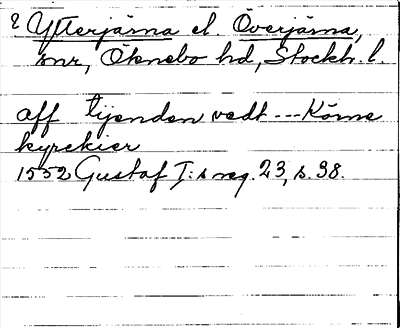 ? Ytterjärna el. Överjärna,
snr, Öknebo hd, Stockh. l.
aff tijenden vedt --- Kärne
kyrekier
1552 Gustaf I:s reg. 23, s. 38.